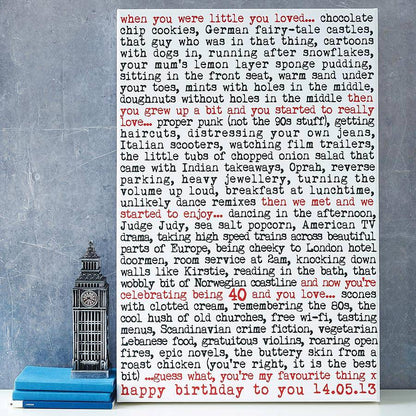 when you were little you loved... chocolate
chip cookies, German fairy-tale castles,
that guy who was in that thing, cartoons
with dogs in, running after snowflakes,
your mum's lemon layer sponge pudding,
sitting in the front seat, warm sand under
your toes, mints with holes in the middle,
doughnuts without holes in the middle then
you grew up a bit and you started to really
love... proper punk (not the 90s stuff), getting
haircuts, distressing your own jeans,
Italian scooters, watching film trailers,
the little tubs of chopped onion salad that
came with Indian takeaways, Oprah, reverse
parking, heavy jewellery, turning the
volume up loud, breakfast at lunchtime,
unlikely dance remixes then we met and we
started to enjoy... dancing in the afternoon,
Judge Judy, sea salt popcorn, American TV
drama, taking high speed trains across beautiful
parts of Europe, being cheeky to London hotel
doormen, room service at 2am, knocking down
walls like Kirstie, reading in the bath, that
wobbly bit of Norwegian coastline and now you're
celebrating being 40 and you love... scones
with clotted cream, remembering the 80s, the
cool hush of old churches, free wi-fi, tasting
menus, Scandinavian crime fiction, vegetarian
Lebanese food, gratuitous violins, roaring open
fires, epic novels, the buttery skin from a
roast chicken (you're right, it is the best
bit) ...guess what, you're my favourite thing x
happy birthday to you 14.05.13